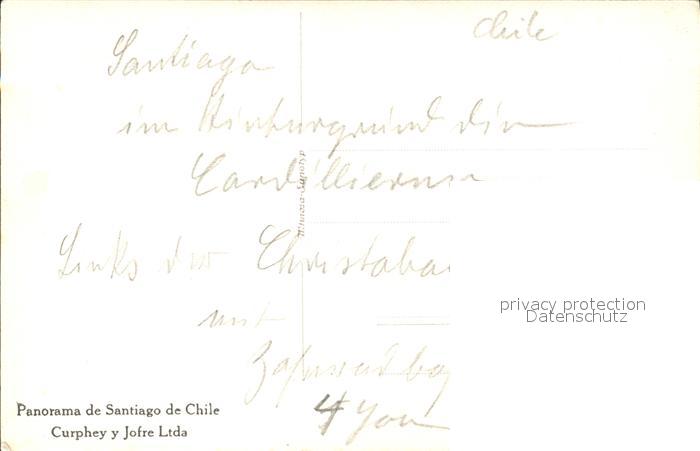 Chile
Santiago
im Hinturgrund din
Cordilliernn
Links der Christoba
mit
Zahnradba
4 You
Mimosa-Sunotyp
privacy protection
Datenschutz
Panorama de Santiago de Chile
Curphey y Jofre Ltda